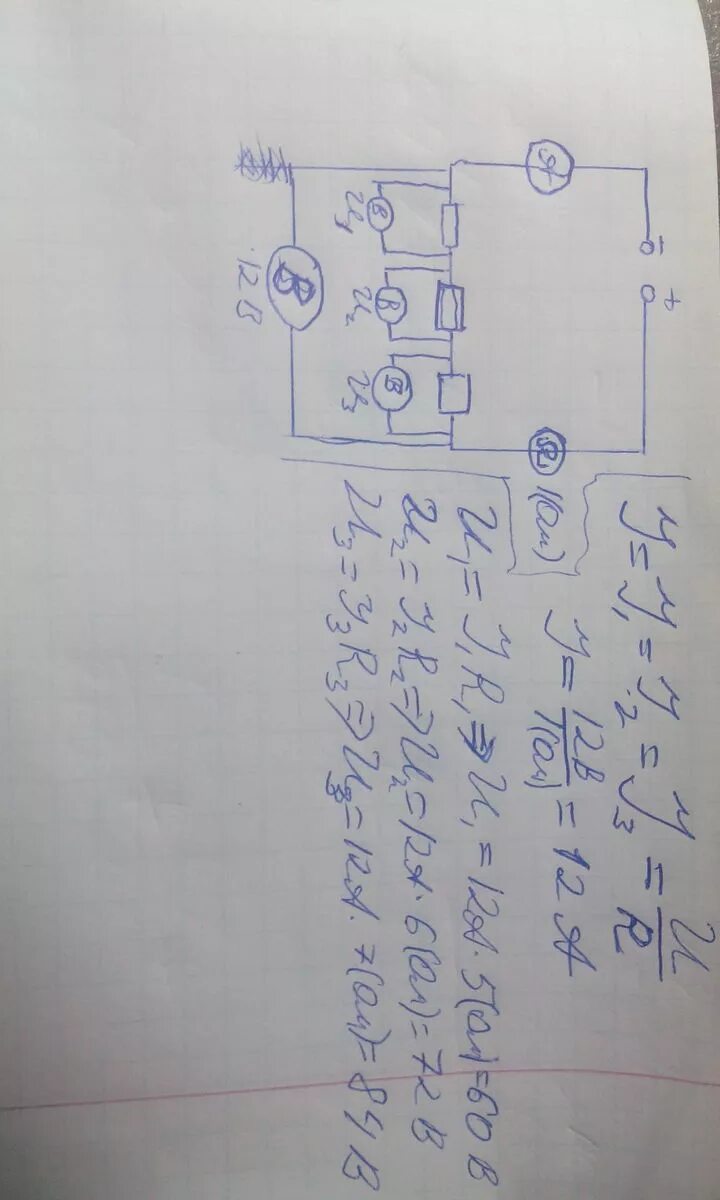 − +
A
R₁ 1(Ом)
В В В
U₁ U₂ U₃
В
12 В
I = I₁ = I₂ = I₃ = U/R
I = 12В/1(Ом) = 12 А
U₁ = I₁R₁ ⇒ U₁ = 12А · 5(Ом) = 60 В
U₂ = I₂R₂ ⇒ U₂ = 12А · 6(Ом) = 72 В
U₃ = I₃R₃ ⇒ U₃ = 12А · 7(Ом) = 84 В